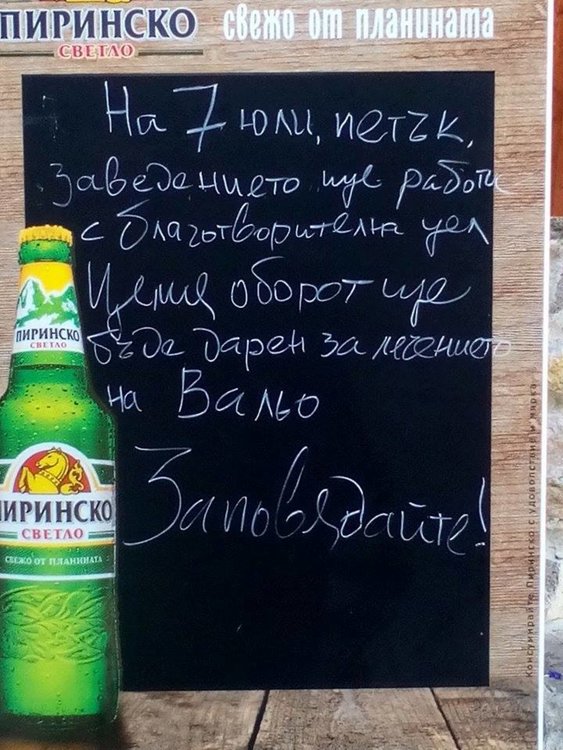 ПИРИНСКО свежо от планината
СВЕТЛО
На 7 юли, петък,
заведението ще работи
с благотворителна цел
Целия оборот ще
бъде дарен за лечението
на Вальо
Заповядайте!
ПИРИНСКО
СВЕТЛО
ПИРИНСКО
СВЕТЛО
СВЕЖО ОТ ПЛАНИНАТА
Консумирайте Пиринско с удоволствие и мярка